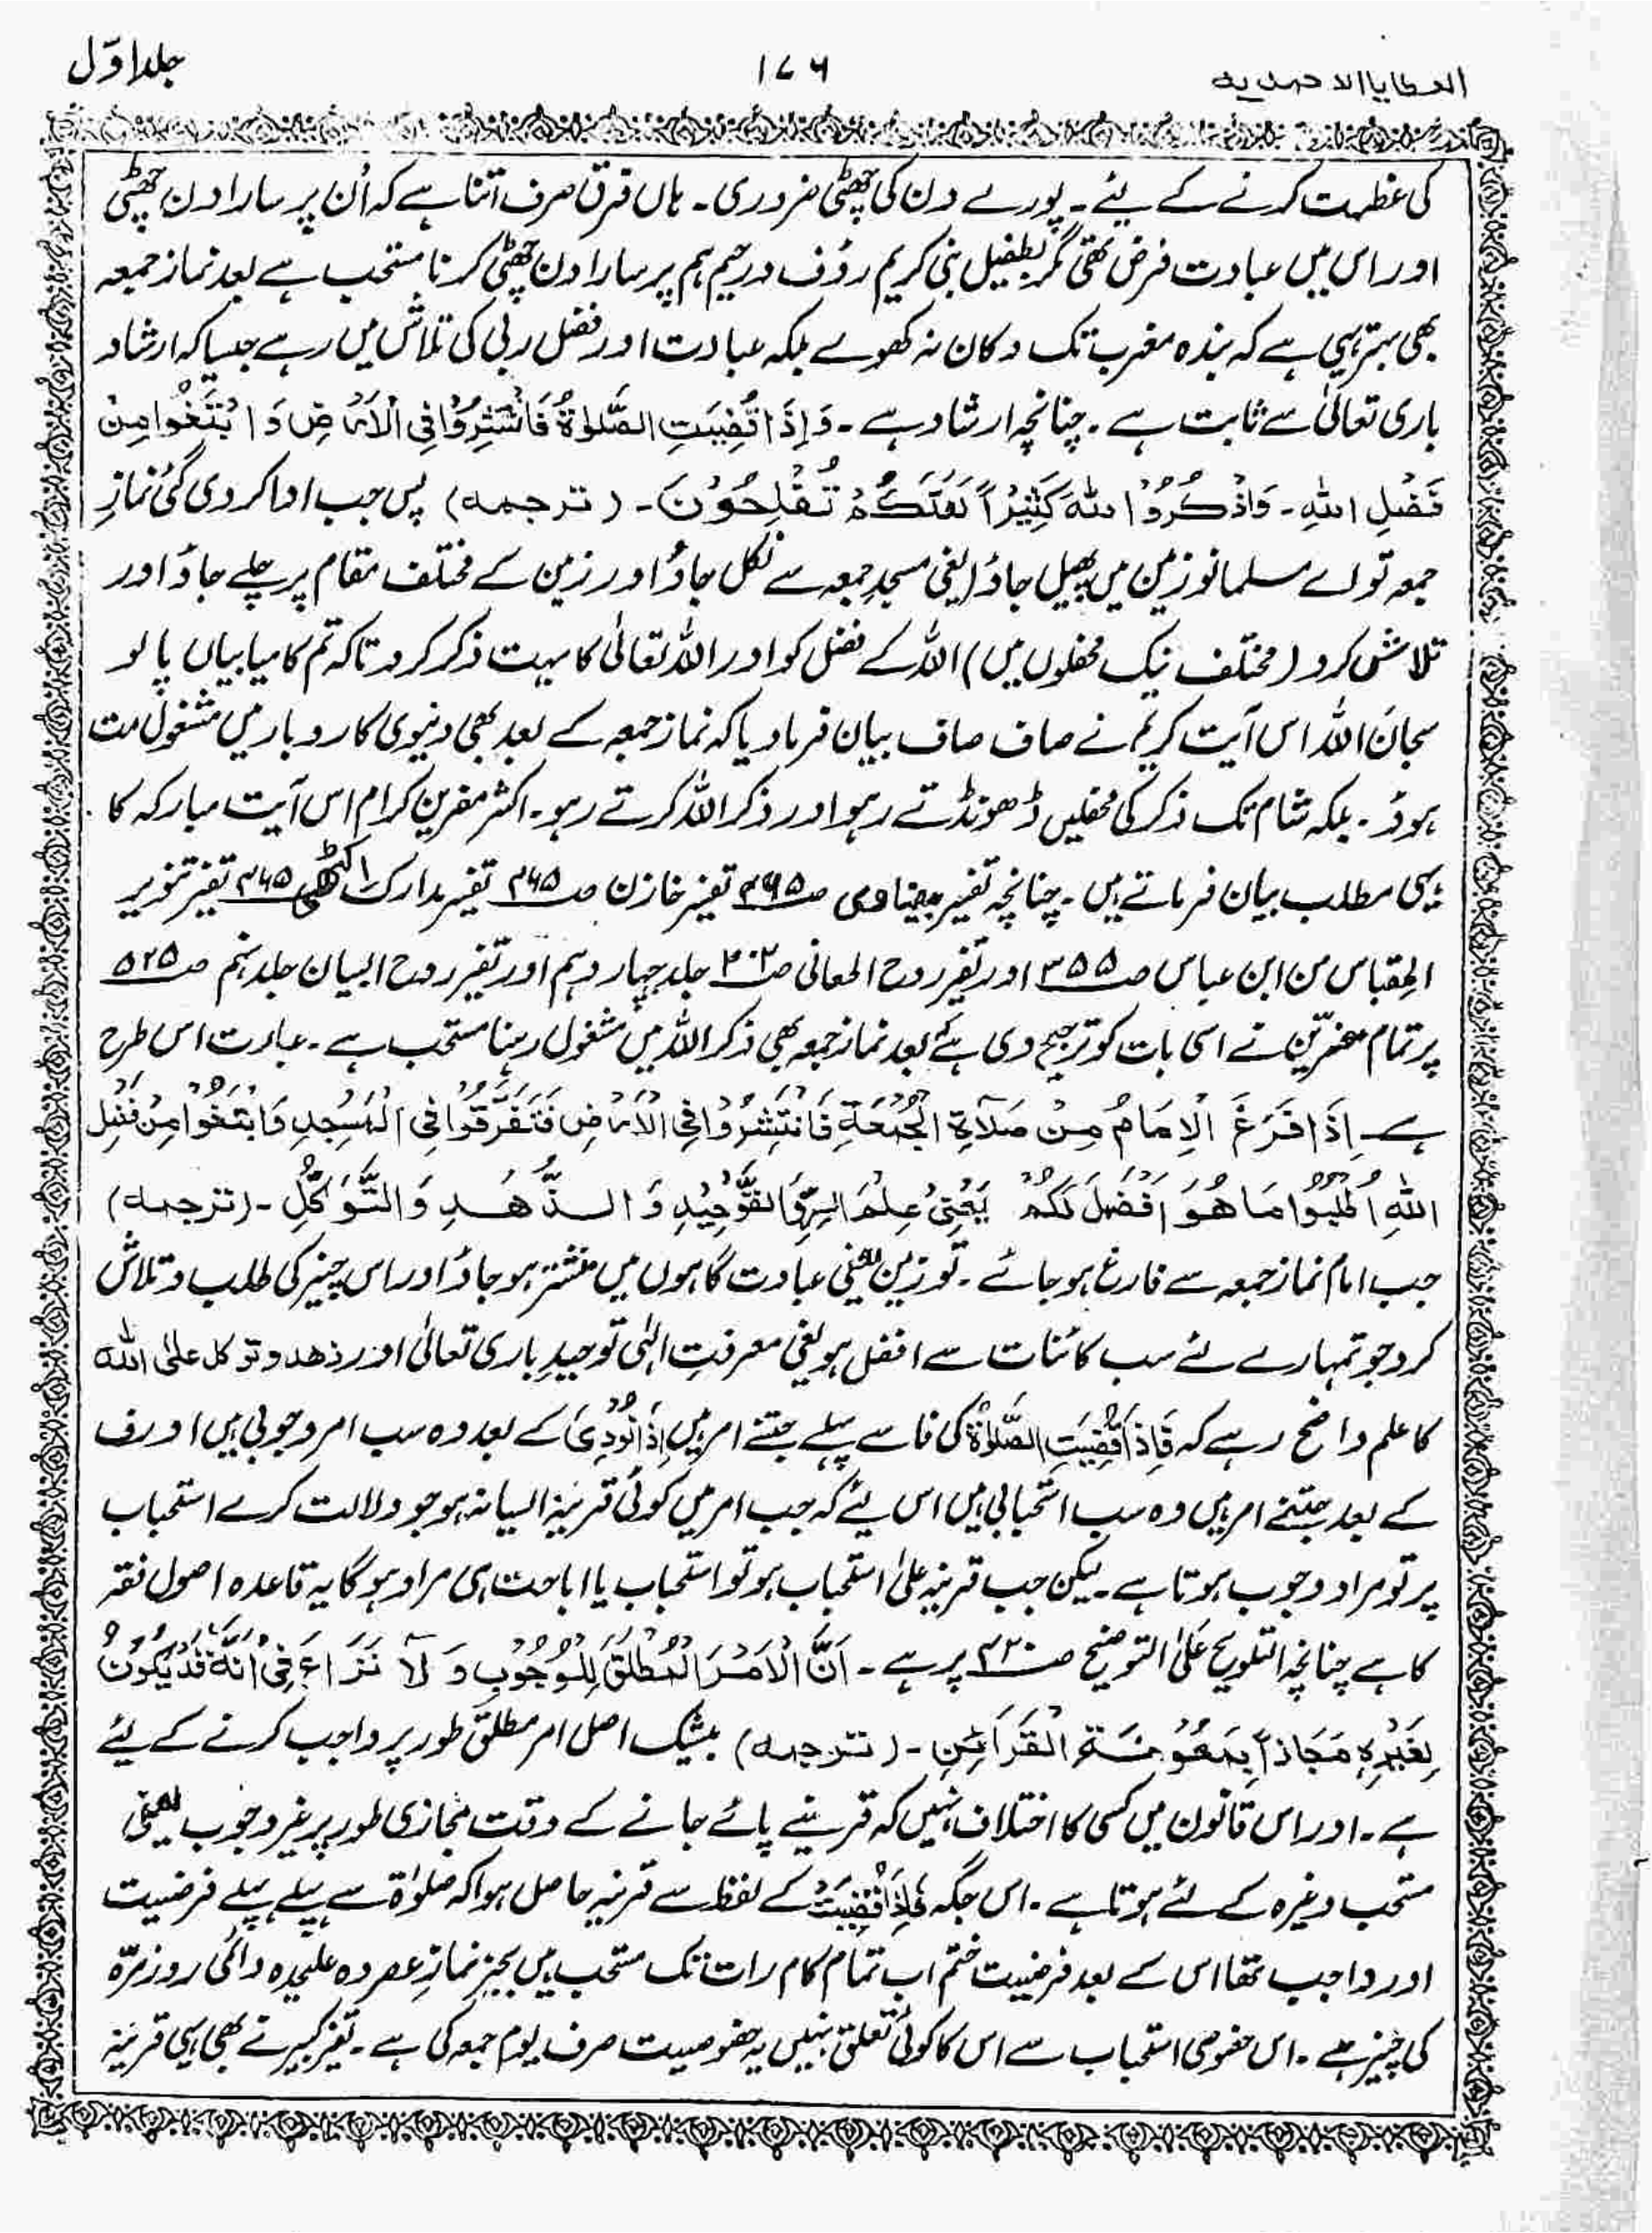 العطایا الاحمدیہ ۱۷۶ جلد اوّل
کی عظمت کرنے کے لیئے۔ پورے دن کی چھٹی ضروری۔ ہاں فرق صرف اتنا ہے کہ اُن پر سارا دن چھٹی
اور اس میں عبادت فرض تھی مگر بطفیل نبی کریم رؤف و رحیم ہم پر سارا دن چھٹی کرنا مستحب ہے بعد نماز جمعہ
بھی بہتر یہی ہے کہ بندہ مغرب تک دکان نہ کھولے بلکہ عبادت اور فضل ربی کی تلاش میں رہے جیسا کہ ارشاد
باری تعالیٰ سے ثابت ہے۔ چنانچہ ارشاد ہے۔ وَاِذَا قُضِیَتِ الصَّلوٰةُ فَانْتَشِرُوْا فِی الْاَرْضِ وَابْتَغُوْا مِنْ
فَضْلِ اللہِ۔ وَاذْکُرُوْا اللہَ کَثِیْرًا لَعَلَّکُمْ تُفْلِحُوْنَ۔ (ترجمہ) پس جب ادا کر دی گئی نمازِ
جمعہ تو اے مسلمانو زمین میں پھیل جاؤ (یعنی مسجدِ جمعہ سے نکل جاؤ اور زمین کے مختلف مقام پر چلے جاؤ اور
تلاش کرو (مختلف نیک محفلوں میں) اللہ کے فضل کو اور اللہ تعالیٰ کا بہت ذکر کرو تاکہ تم کامیابیاں پا لو
سبحان اللہ اس آیت کریم نے صاف صاف بیان فرما دیا کہ نماز جمعہ کے بعد بھی دنیوی کاروبار میں مشغول مت
ہوؤ۔ بلکہ شام تک ذکر کی محفلیں ڈھونڈتے رہو اور ذکر اللہ کرتے رہو۔ اکثر مفسرین کرام اس آیت مبارکہ کا
یہی مطلب بیان فرماتے ہیں۔ چنانچہ تفسیر بیضاوی صـ۲۶۵ تفسیر خازن صـ۲۶۵ تفسیر مدارک اکٹھی ۲۶۵ تفسیر تنویر
المقباس من ابن عباس صـ۳۵۵ اور تفسیر روح المعانی صـ۲۰۳ جلد چہاردہم اور تفسیر روح البیان جلد نہم صـ۵۲۵
پر تمام مفسرّین نے اسی بات کو ترجیح دی ہے کہ بعد نماز جمعہ بھی ذکر اللہ میں مشغول رہنا مستحب ہے۔ عبارت اس طرح
ہے۔ اِذَا فَرَغَ الْاِمَامُ مِنْ صَلَاةِ الْجُمُعَةِ فَانْتَشِرُوْا فِی الْاَرْضِ فَتَفَرَّقُوْا فِی الْمَسْجِدِ وَابْتَغُوْا مِنْ فَضْلِ
اللہِ اُطْلُبُوْا مَا هُوَ اَفْضَلَ لَکُمْ یَعْنِیْ عِلْمَ السِّرِّ وَالتَّوْحِیْدِ وَالزُّهْدِ وَالتَّوَکُّلِ۔ (ترجمہ)
جب امام نماز جمعہ سے فارغ ہو جائے۔ تو زمین یعنی عبادت گاہوں میں منتشر ہو جاؤ اور اس چیز کی طلب و تلاش
کرو جو تمہارے لئے سب کائنات سے افضل ہو یعنی معرفتِ الٰہی توحیدِ باری تعالیٰ اور زھد و توکل علیٰ اللہ
کا علم واضح رہے کہ فَاِذَا قُضِیَتِ الصَّلوٰةُ کی فا سے پہلے جتنے امر ہیں اِذَا نُوْدِیَ کے بعد وہ سب امر وجوبی ہیں اور ف
کے بعد جتنے امر ہیں وہ سب استحبابی ہیں اس لیئے کہ جب امر میں کوئی قرینہ ایسا نہ ہو جو دلالت کرے استحباب
پر تو مراد وجوب ہوتا ہے۔ لیکن جب قرینہ علیٰ استحباب ہو تو استحباب یا اباحت ہی مراد ہو گا یہ قاعدہ اصول فقہ
کا ہے چنانچہ التلویح علیٰ التوضیح پر ہے۔ اَنَّ الْاَمْرَ الْمُطْلَقَ لِلْوُجُوْبِ وَلَا نَزَاءَ فِیْ اَنَّهٗ قَدْ یَکُوْنُ
لِغَیْرِهٖ مَجَازًا بِمَعُوْنَةِ الْقَرَائِنِ۔ (ترجمہ) بیشک اصل امر مطلق طور پر واجب کرنے کے لیئے
ہے۔ اور اس قانون میں کسی کا اختلاف نہیں کہ قرینے پائے جانے کے وقت مجازی طور پر غیر وجوب یعنی
مستحب وغیرہ کے لئے ہوتا ہے۔ اس جگہ فَاِذَا قُضِیَتْ کے لفظ سے قرینہ حاصل ہوا کہ صلوٰۃ سے پہلے پہلے فرضیت
اور واجب تھا اس کے بعد فرضیت ختم اب تمام کام رات تک مستحب ہیں بجز نمازِ عصر وہ علیحدہ دائمی روزمرّہ
کی چیز ہے۔ اس خصوصی استحباب سے اس کا کوئی تعلق نہیں یہ خصوصیت صرف یوم جمعہ کی ہے۔ تفسیر کبیر نے بھی یہی قرینہ